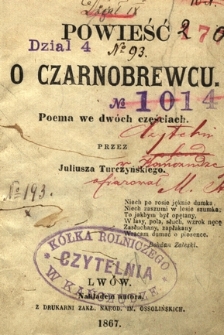 POWIEŚĆ
Dział 4
№ 93.
O CZARNOBREWCU.
№ 1014
Poema we dwóch częściach.
PRZEZ
Juliusza Turczyńskiego.
№ 193.
Niach po rosie jęknie dumka
Niech zaszumi w lesie szumka;
To jakbym był opętany.
W lasy, pola, słuch, wzrok nęcę
Zasłuchany, zapłakany
Wieszczą dumać o piosence.
Bohdan Zaleski.
KÓŁKA ROLNICZEGO
CZYTELNIA
LWÓW.
Nakładem autora.
Z DRUKARNI ZAKŁ. NAROD. IM. OSSOLIŃSKICH.
1867.